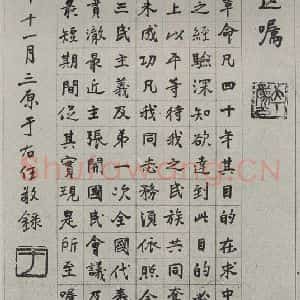 囑
革命凡四十年其目的在求中
之經驗深知欲達到此目的必
上以平等待我之民族共同奮
未成功凡我同志務須依照余
三民主義及第一次全國代表
貫澈最近主張開國民會議及
最短期間促其實現是所至囑
十一月三原于右任敬錄
Shufawang.CN